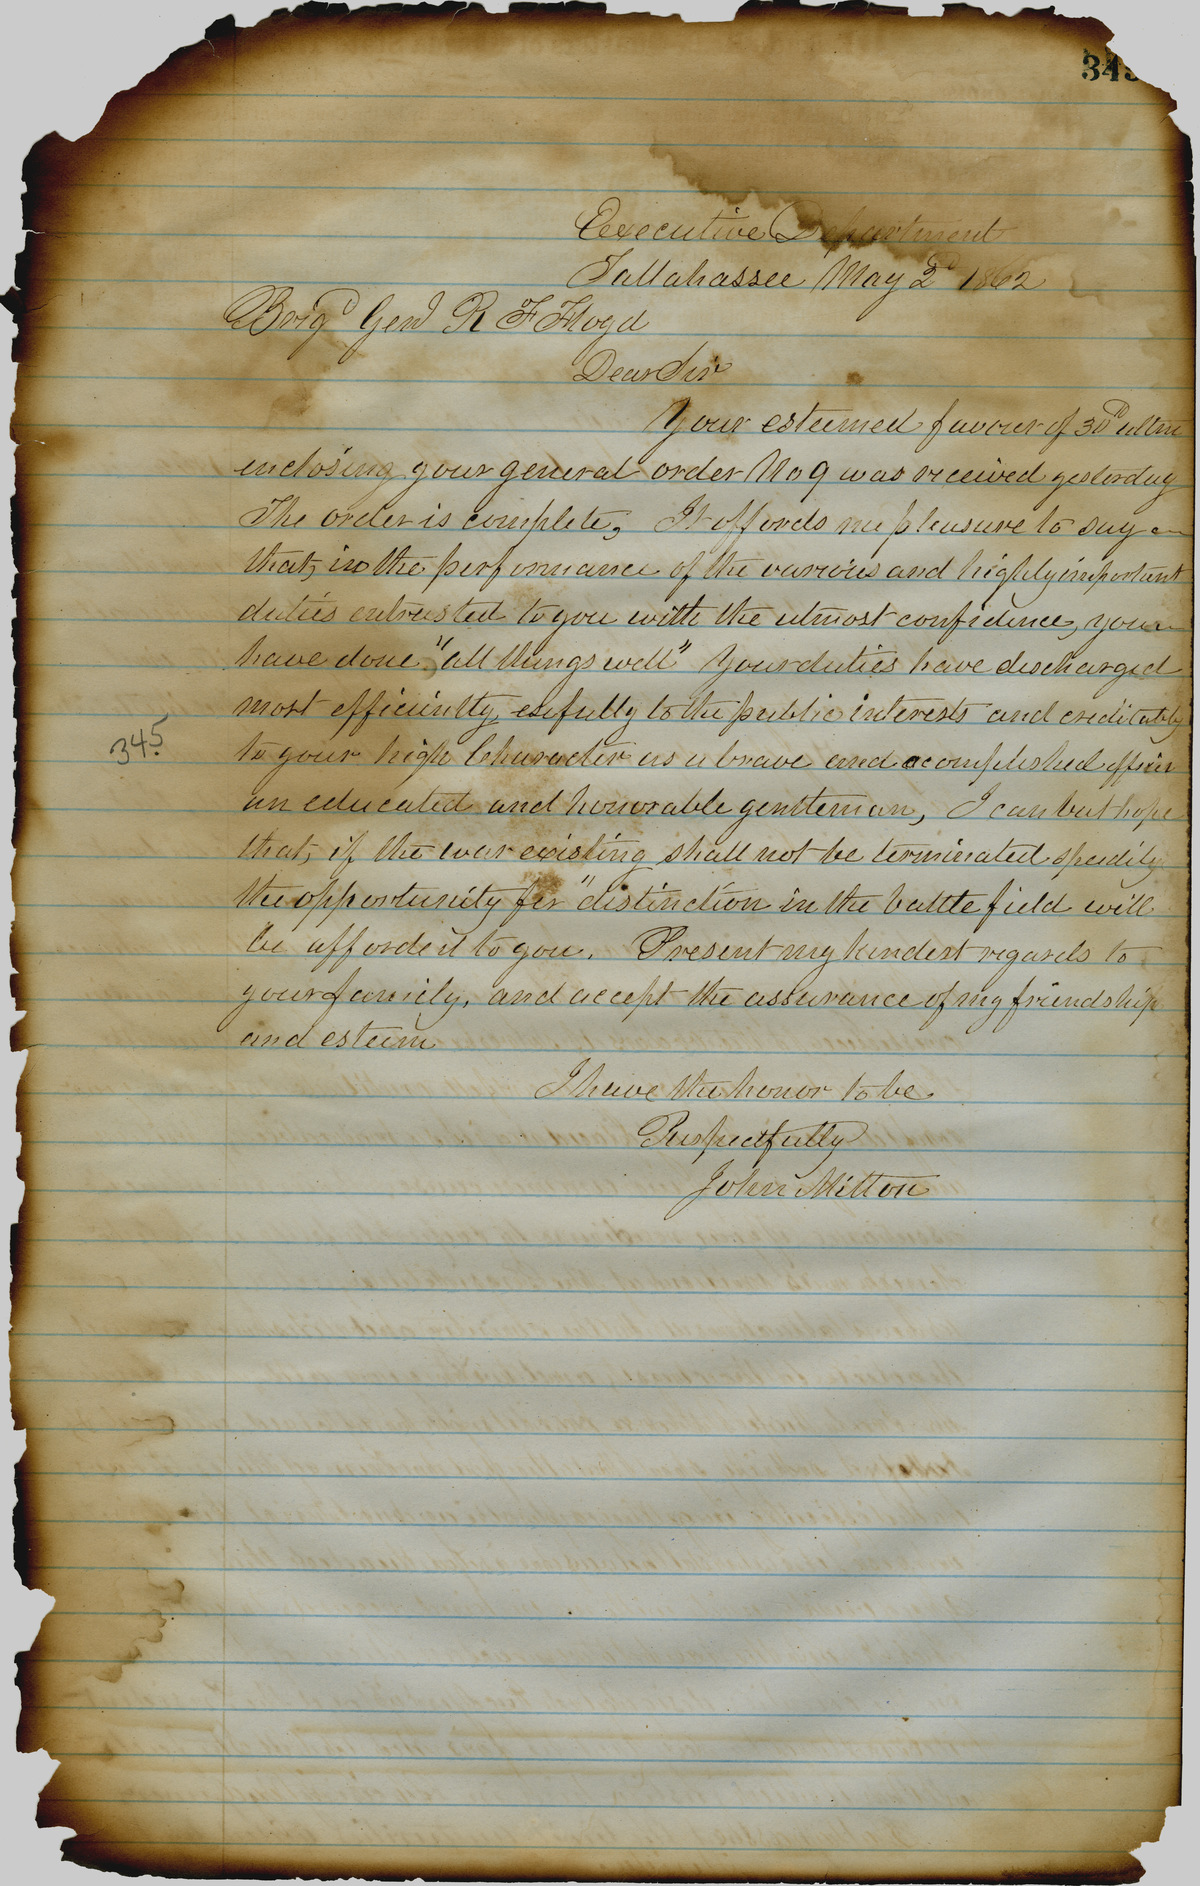 345
Executive Department
Tallahassee May 2d 1862
Brigd Genl R F Floyd
Dear Sir
Your esteemed favour of 30d ultm
enclosing your general order No 9 was received yesterday
The order is complete, It affords me pleasure to say
that, in the performance of the various and highly important
duties entrusted to you with the utmost confidence, you
have done "all things well" Your duties have discharged
most efficiently, usefully to the public interests and creditably
345 to your high Character as a brave and acomplished officer
an educated and honorable gentleman, I can but hope
that, if the war existing shall not be terminated speedily
the opportunity for "distinction in the battle field will
be afforded to you. Present my kindest regards to
your family, and accept the assurance of my friendship
and esteem
I have the honor to be
Respectfully
John Milton